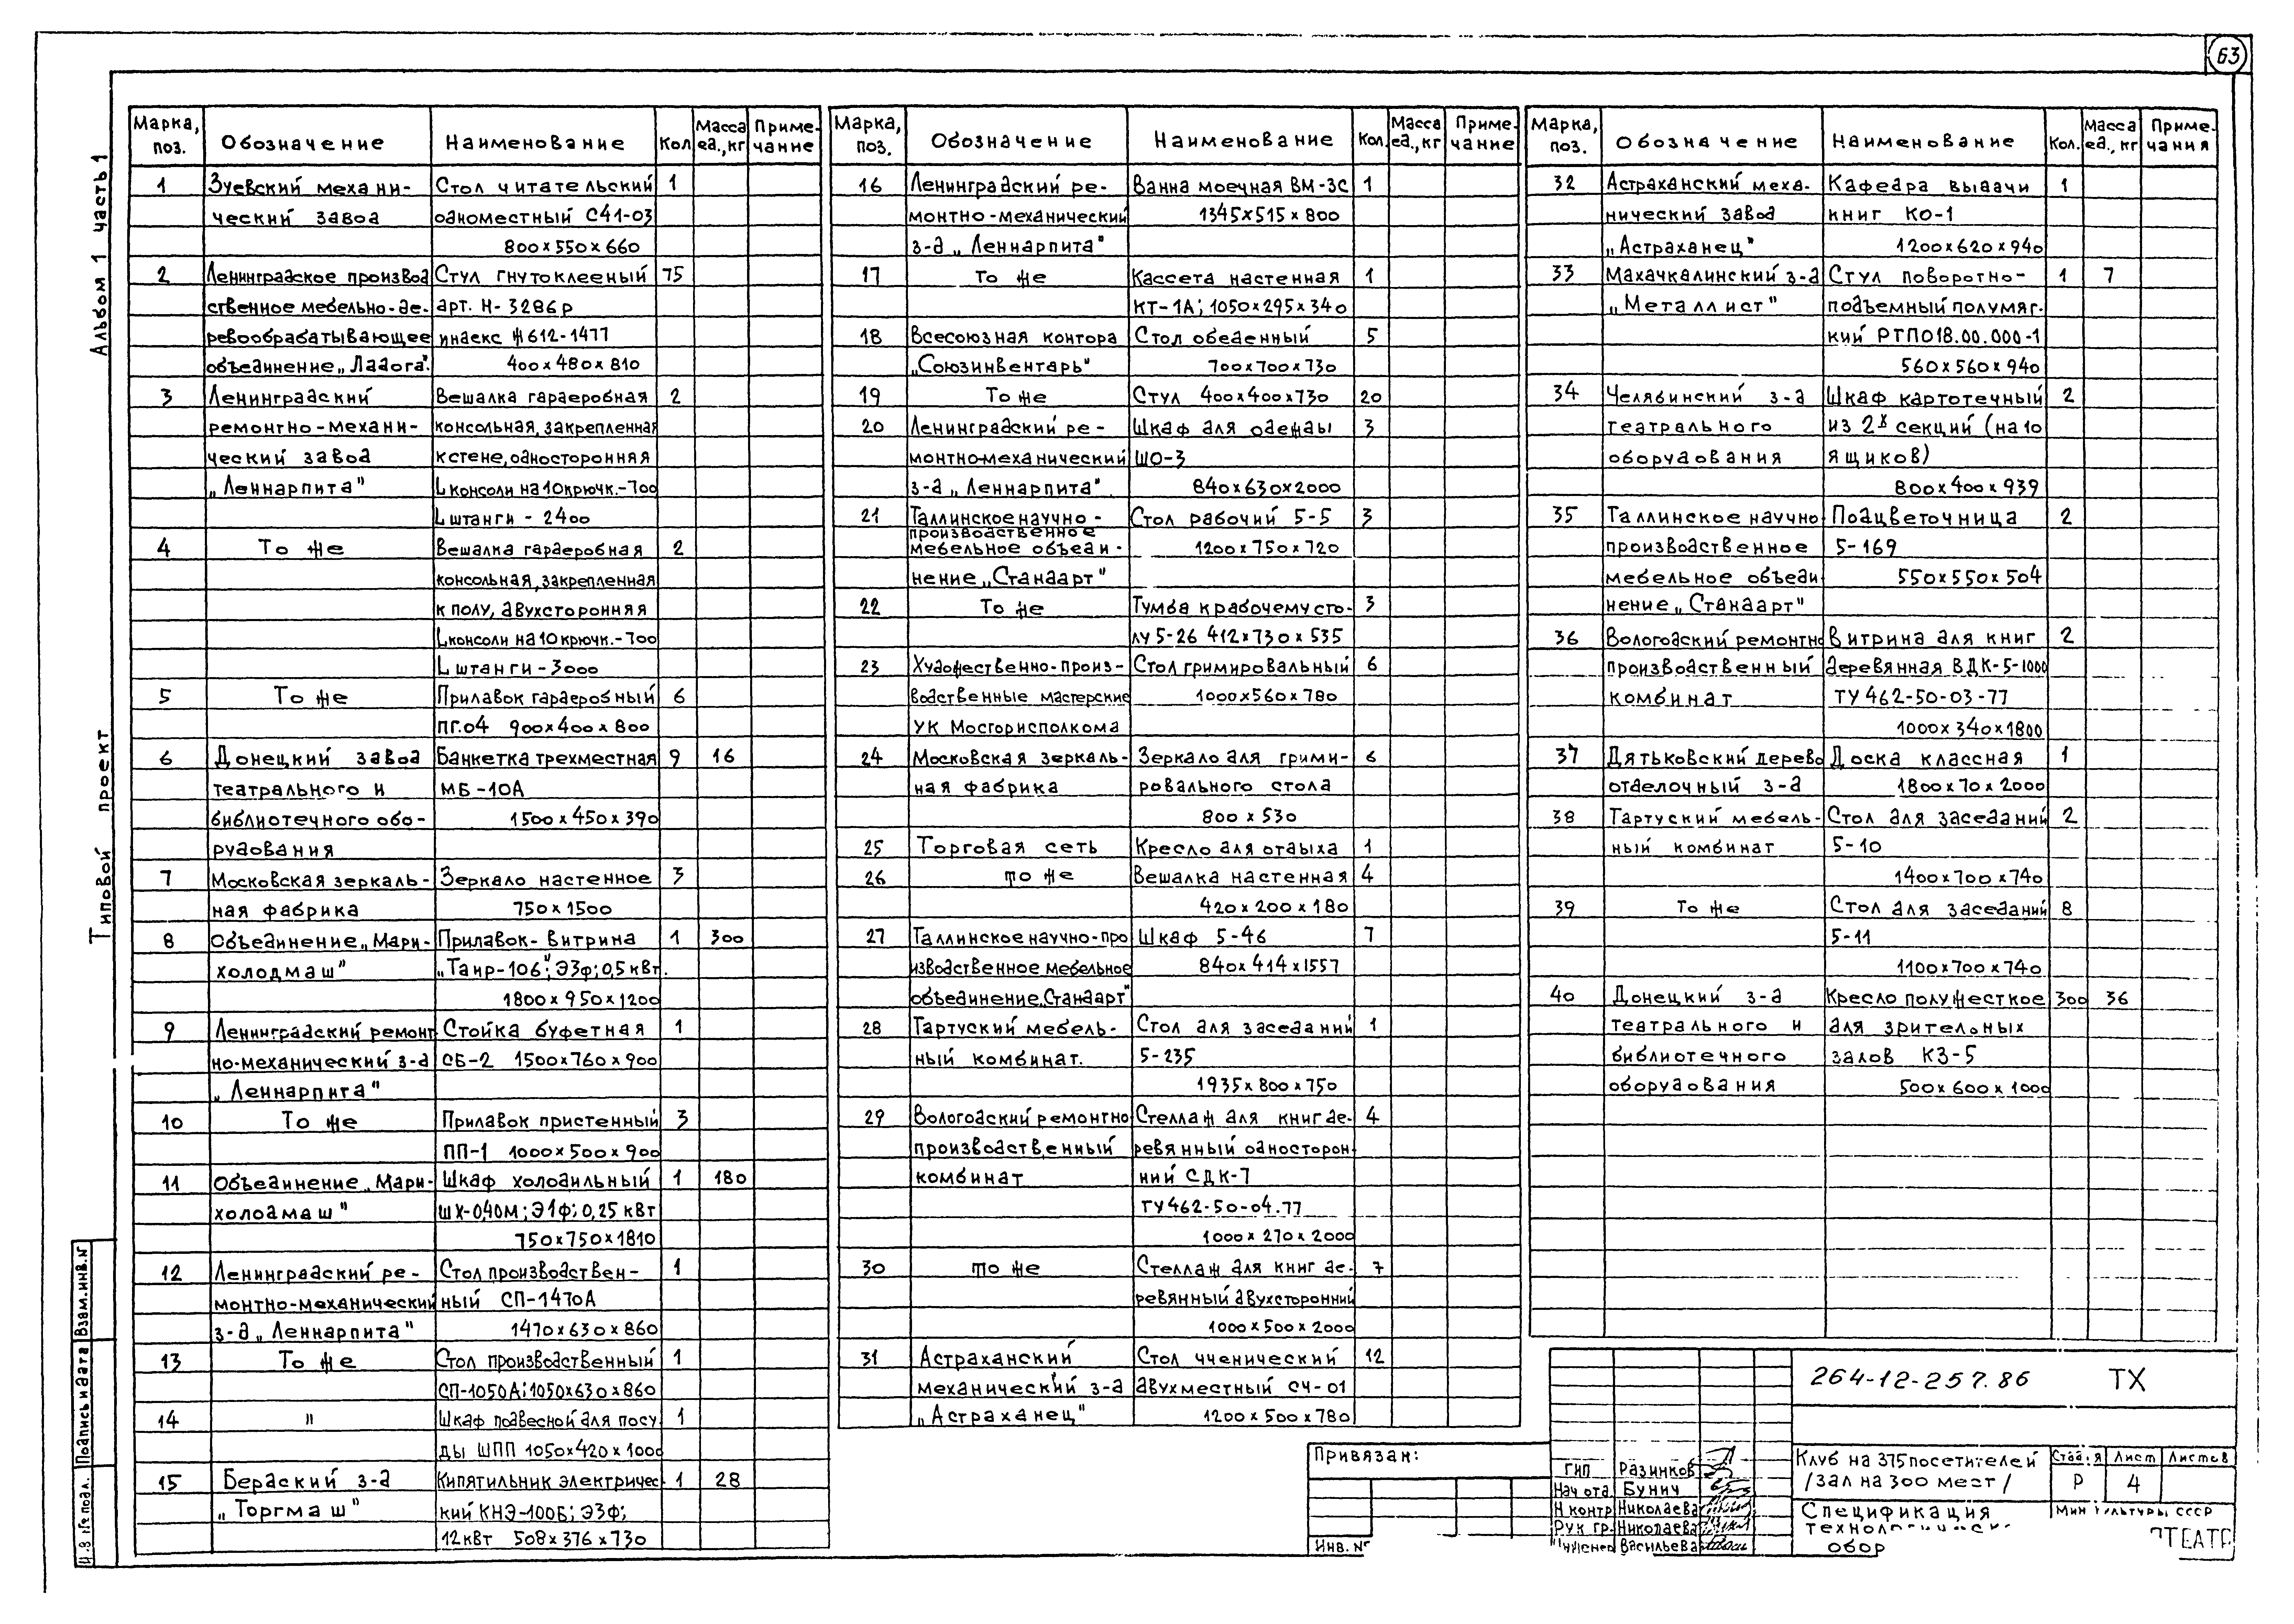 63
Альбом 1 часть 1
Типовой проект
Марка, поз. Обозначение Наименование Кол Масса ед., кг Примечание
1 Зуевский механи- Стол читательский 1
ческий завод одноместный С41-03
800х550х660
2 Ленинградское производ Стул гнутоклееный 75
ственное мебельно-де- арт. Н-3286р
ревообрабатывающее индекс Ж612-1477
объединение „Ладога". 400х480х810
3 Ленинградский Вешалка гардеробная 2
ремонтно-механи- консольная, закрепленная
ческий завод к стене, односторонняя
„Леннарпита" L консоли на 10 крючк.-700
L штанги - 2400
4 То же Вешалка гардеробная 2
консольная, закрепленная
к полу, двухсторонняя
L консоли на 10 крючк.-700
L штанги-3000
5 То же Прилавок гардеробный 6
ПГ.04 900х400х800
6 Донецкий завод Банкетка трехместная 9 16
театрального и МБ-10А
библиотечного обо- 1500х450х390
рудования
7 Московская зеркаль- Зеркало настенное 3
ная фабрика 750х1500
8 Объединение „Мари- Прилавок-витрина 1 300
холодмаш" „Таир-106"; Э3ф; 0,5 кВт.
1800х950х1200
9 Ленинградский ремонт Стойка буфетная 1
но-механический з-д СБ-2 1500х760х900
„Леннарпита"
10 То же Прилавок пристенный 3
ПП-1 1000х500х900
11 Объединение „Мари- Шкаф холодильный 1 180
холодмаш" ШХ-0,40М; Э1ф; 0,25 кВт
750х750х1810
12 Ленинградский ре- Стол производствен- 1
монтно-механический ный СП-1470А
з-д „Леннарпита" 1470х630х860
13 То же Стол производственный 1
СП-1050А; 1050х630х860
14 " Шкаф подвесной для посу 1
ды ШПП 1050х420х1000
15 Бердский з-д Кипятильник электричес 1 28
„Торгмаш" кий КНЭ-100Б; Э3ф;
12 кВт 508х376х730
Марка, поз. Обозначение Наименование Кол. Масса ед., кг Примечание
16 Ленинградский ре- Ванна моечная ВМ-3С 1
монтно-механический 1345х515х800
з-д „Леннарпита"
17 То же Кассета настенная 1
КТ-1А; 1050х295х340
18 Всесоюзная контора Стол обеденный 5
„Союзинвентарь" 700х700х730
19 То же Стул 400х400х730 20
20 Ленинградский ре- Шкаф для одежды 3
монтно-механический ШО-3
з-д „Леннарпита". 840х630х2000
21 Таллинское научно- Стол рабочий 5-5 3
производственное
мебельное объеди- 1200х750х720
нение „Стандарт"
22 То же Тумба к рабочему сто- 3
лу 5-26 412х730х535
23 Художественно-произ- Стол гримировальный 6
водственные мастерские 1000х560х780
УК Мосгорисполкома
24 Московская зеркаль- Зеркало для грими- 6
ная фабрика ровального стола
800х530
25 Торговая сеть Кресло для отдыха 1
26 то же Вешалка настенная 4
420х200х180
27 Таллинское научно-про Шкаф 5-46 7
изводственное мебельное 840х414х1557
объединение „Стандарт"
28 Тартуский мебель- Стол для заседаний 1
ный комбинат. 5-235
1935х800х750
29 Вологодский ремонтно Стеллаж для книг де- 4
производственный ревянный односторон
комбинат ний СДК-7
ТУ462-50-04.77
1000х270х2000
30 то же Стеллаж для книг де- 7
ревянный двухсторонний
1000х500х2000
31 Астраханский Стол ученический 12
механический з-д двухместный СЧ-01
„Астраханец" 1200х500х780
Марка, поз. Обозначение Наименование Кол. Масса ед., кг Примечания
32 Астраханский меха- Кафедра выдачи 1
нический завод книг КО-1
„Астраханец" 1200х620х940
33 Махачкалинский з-д Стул поворотно- 1 7
„Металлист" подъемный полумяг-
кий РТП018.00.000-1
560х560х940
34 Челябинский з-д Шкаф картотечный 2
театрального из 2х секций (на 10
оборудования ящиков)
800х400х939
35 Таллинское научно Подцветочница 2
производственное 5-169
мебельное объеди 550х550х504
нение „Стандарт"
36 Вологодский ремонтно Витрина для книг 2
производственный деревянная ВДК-5-1000
комбинат ТУ 462-50-03-77
1000х340х1800
37 Дятьковский дерево Доска классная 1
отделочный з-д 1800х70х2000
38 Тартуский мебель- Стол для заседаний 2
ный комбинат 5-10
1400х700х740
39 то же Стол для заседаний 8
5-11
1100х700х740
40 Донецкий з-д Кресло полужесткое 300 36
театрального и для зрительных
библиотечного залов КЗ-5
оборудования 500х600х1000
264-12-257.86 ТХ
Привязан:
Инв. №
ГИП Разинков
Нач отд. Бунич
Н контр Николаева
Рук гр. Николаева
Васильева
Клуб на 375 посетителей
/зал на 300 мест/
Стадия Лист Листов
Р 4
Спецификация
обор
Мин культуры СССР
ТЕАТР
Взам.инв.№
Подпись и дата